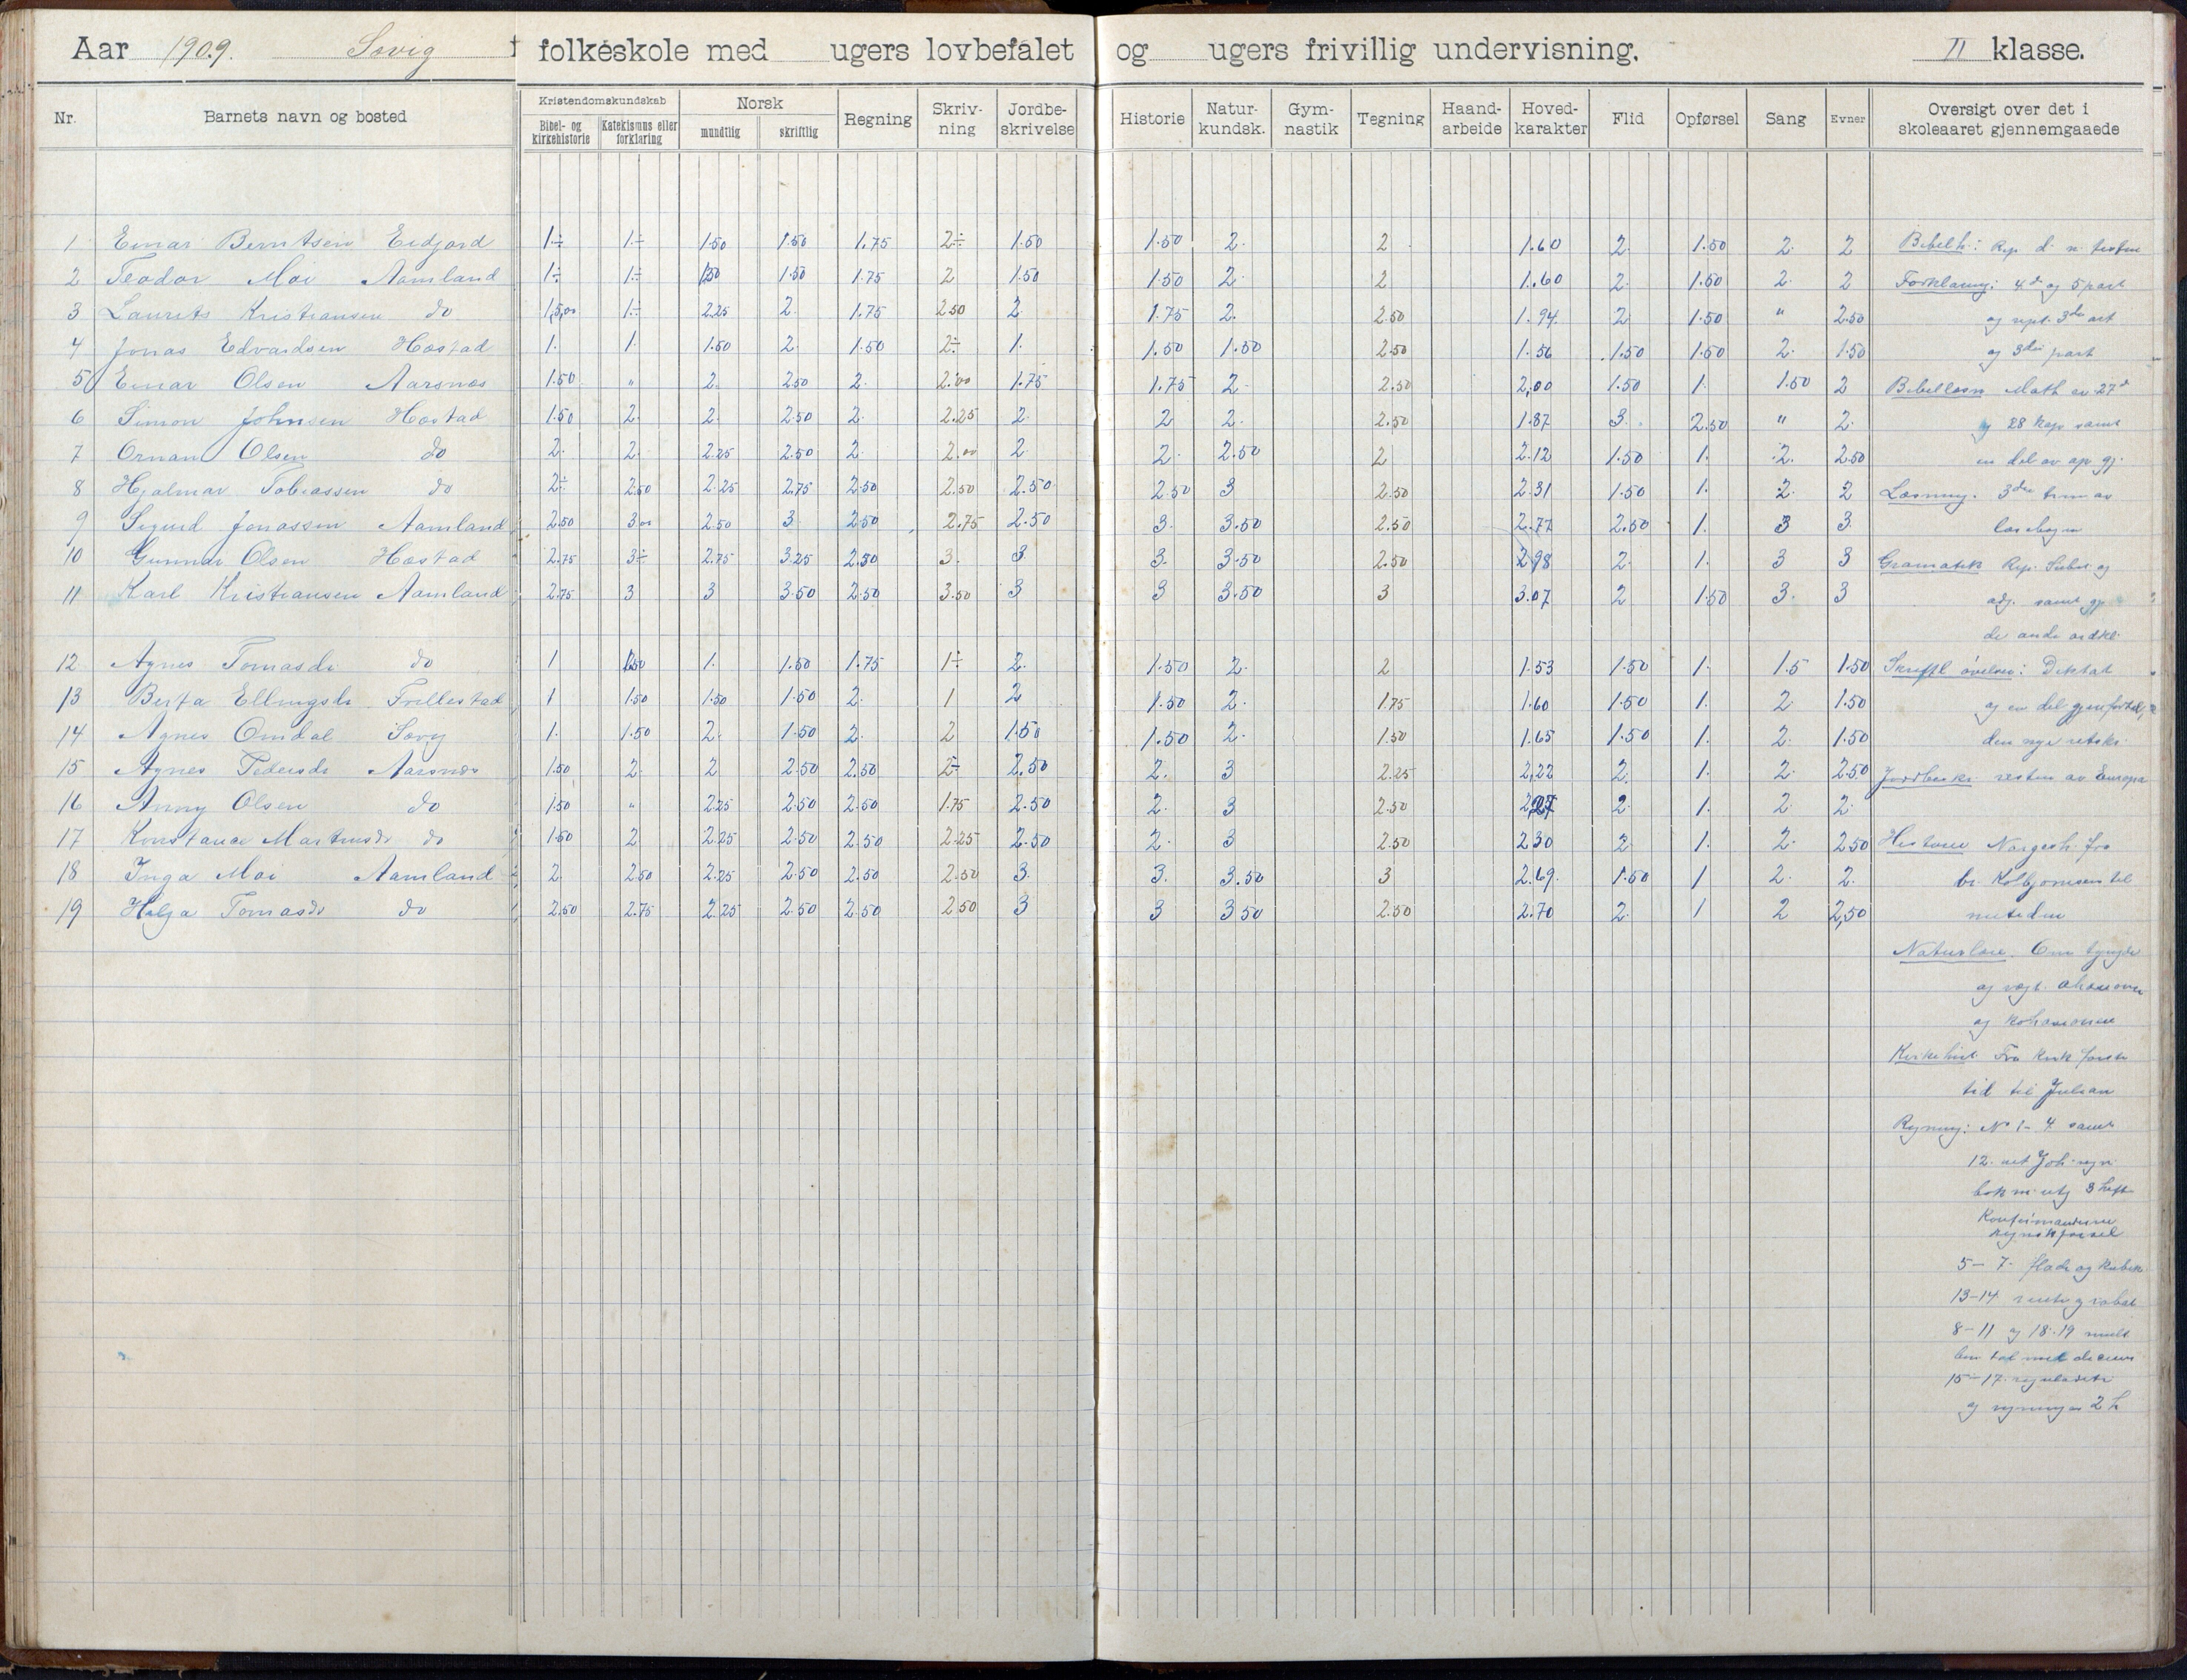 Aar 1909. Sovig folkeskole med ugers lovbefalet og ugers frivillig undervisning. II klasse.
Nr. Barnets navn og bosted Kristendomskundskab Norsk Regning Skriv-ning Jordbe-skrivelse Historie Natur-kundsk. Gym-nastik Tegning Haand-arbeide Hoved-karakter Flid Opførsel Sang Evner Oversigt over det i skoleaaret gjennemgaaede
Bibel- og kirkehistorie Katekismus eller forklaring mundtlig skriftlig
1 Einar Berntsen Eidjord 1÷ 1÷ 1.50 1.50 1.75 2÷ 1.50 1.50 2. 2 1.60 2 1.50 2. 2 Bibelh: Rep. d. n. testm
2 Teodor Moi Aamland 1÷ 1÷ 1.50 1.50 1.75 2 1.50 1.50 2. 2 1.60 2. 1.50 2. 2 Forklaring: 4d og 5 part
3 Laurits Kristiansen do 1,5,00 1÷ 2.25 2. 1.75 2.50 2. 1.75 2. 2.50 1.94. 2 1.50 " 2.50 og rept. 3die art
4 Jonas Edvardsen Høstad 1. 1. 1.50 2. 1.50 2÷ 1. 1.50 1.50 2.50 1.56 1.50 1.50 2. 1.50 og 3die part
5 Einar Olsen Aarsnes 1.50 " 2. 2.50 2. 2.00 1.75 1.75 2. 2.50 2,00 1.50 1. 1.50 2 Bibellæsn Math ev 27d
6 Simon Johnsen Høstad 1.50 2. 2. 2.50 2. 2.25 2. 2 2. 2.50 1.87 3. 2.50 " 2. og 28 kap samt
7 Ornan Olsen do 2. 2. 2.25 2.50 2. 2.00 2. 2. 2.50 2 2.12 1.50 1. 2. 2.50 en del av ap. gj.
8 Hjalmar Tobiassen do 2÷ 2.50 2.25 2.75 2.50 2.50 2.50 2.50 3 2.50 2.31 1.50 1. 2. 2 Læsning. 3die trin av
9 Sigurd Jonassen Aamland 2.50 3.00 2.50 3. 2.50 2.75 2.50 3. 3.50 2.50 2.77 2.50 1. 3 3. læsebogen
10 Gunnar Olsen Høstad 2.75 3÷ 2.75 3.25 2.50 3. 3. 3. 3.50 2.50 2.98 2. 1. 3 3 Gramatik Rep. Subst. og
11 Karl Kristiansen Aamland 2.75 3 3 3.50 2.50 3.50 3 3 3.50 3 3.07 2 1.50 3. 3 adj. samt gj.
de andre ordkl.
12. Agnes Tomasdr do 1 1.50 1. 1.50 1.75 1÷ 2. 1.50 2. 2 1.53 1.50 1. 1.5 1.50 Skriftl øvelser: Diktat
13 Berta Ellingsdr Trellestad 1 1.50 1.50 1.50 2. 1 2 1.50 2. 1.75 1.60 1.50 1. 2 1.50 og en del gjenfortel,
14 Agnes Omdal Sovig 1. 1.50 2. 1.50 2. 2 1.50 1.50 2. 1.50 1.65 1.50 1. 2. 1.50 den nye retskr.
15 Agnes Pedersdr Aarsnes 1.50 2. 2 2.50 2.50 2÷ 2.50 2. 3 2.25 2,22 2. 1. 2. 2.50 Jordbeskr. resten av Europa
16 Anny Olsen do 1.50 " 2.25 2.50 2.50 1.75 2.50 2. 3 2.50 2,27 2. 1. 2. 2.
17 Konstance Martinsdr do 1.50 2 2.25 2.50 2.50 2.25 2.50 2. 3 2.50 2.30 2. 1. 2. 2.50 Historie Norgesh. fra
18 Inga Moi Aamland 2. 2.50 2.25 2.50 2.50 2.50 3. 3. 3.50 3 2.69. 1.50 1 2. 2. br. Kolbjørnsen til
19 Helga Tomasdr do 2.50 2.75 2.25 2.50 2.50 2.50 3 3 3.50 2.50 2.70 2. 1 2 2,50 nutiden
Naturlære. Om tyngde
og vægt.
og
Kirkehist. Fra kirk første
tid til Julian
Regning: No 1-4 samt
12. Joh.
3 hefte
5-7. flade og kubik
13-14 rente og rabat
8-11 og 18.19
med
15-17.
og 2 h